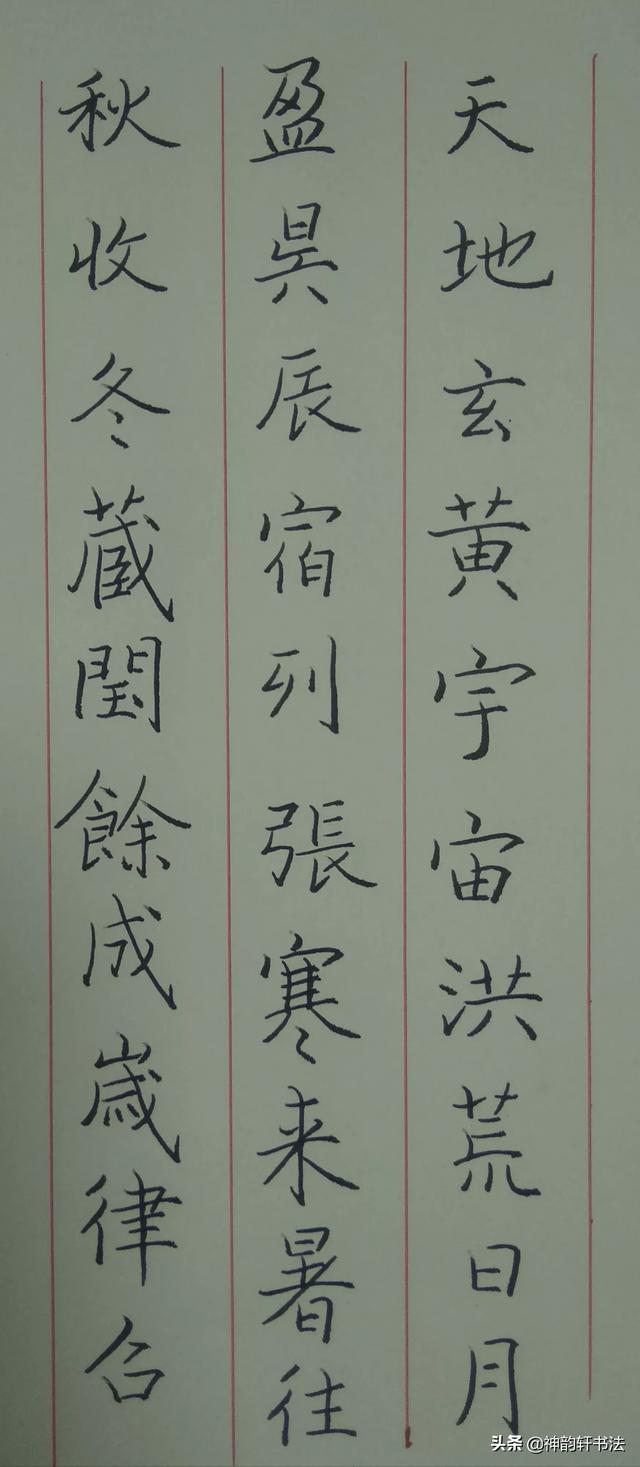 天地玄黄宇宙洪荒日月
盈昃辰宿列張寒来暑往
秋收冬蔵閠餘成嵗律召
头条 @神韵轩书法